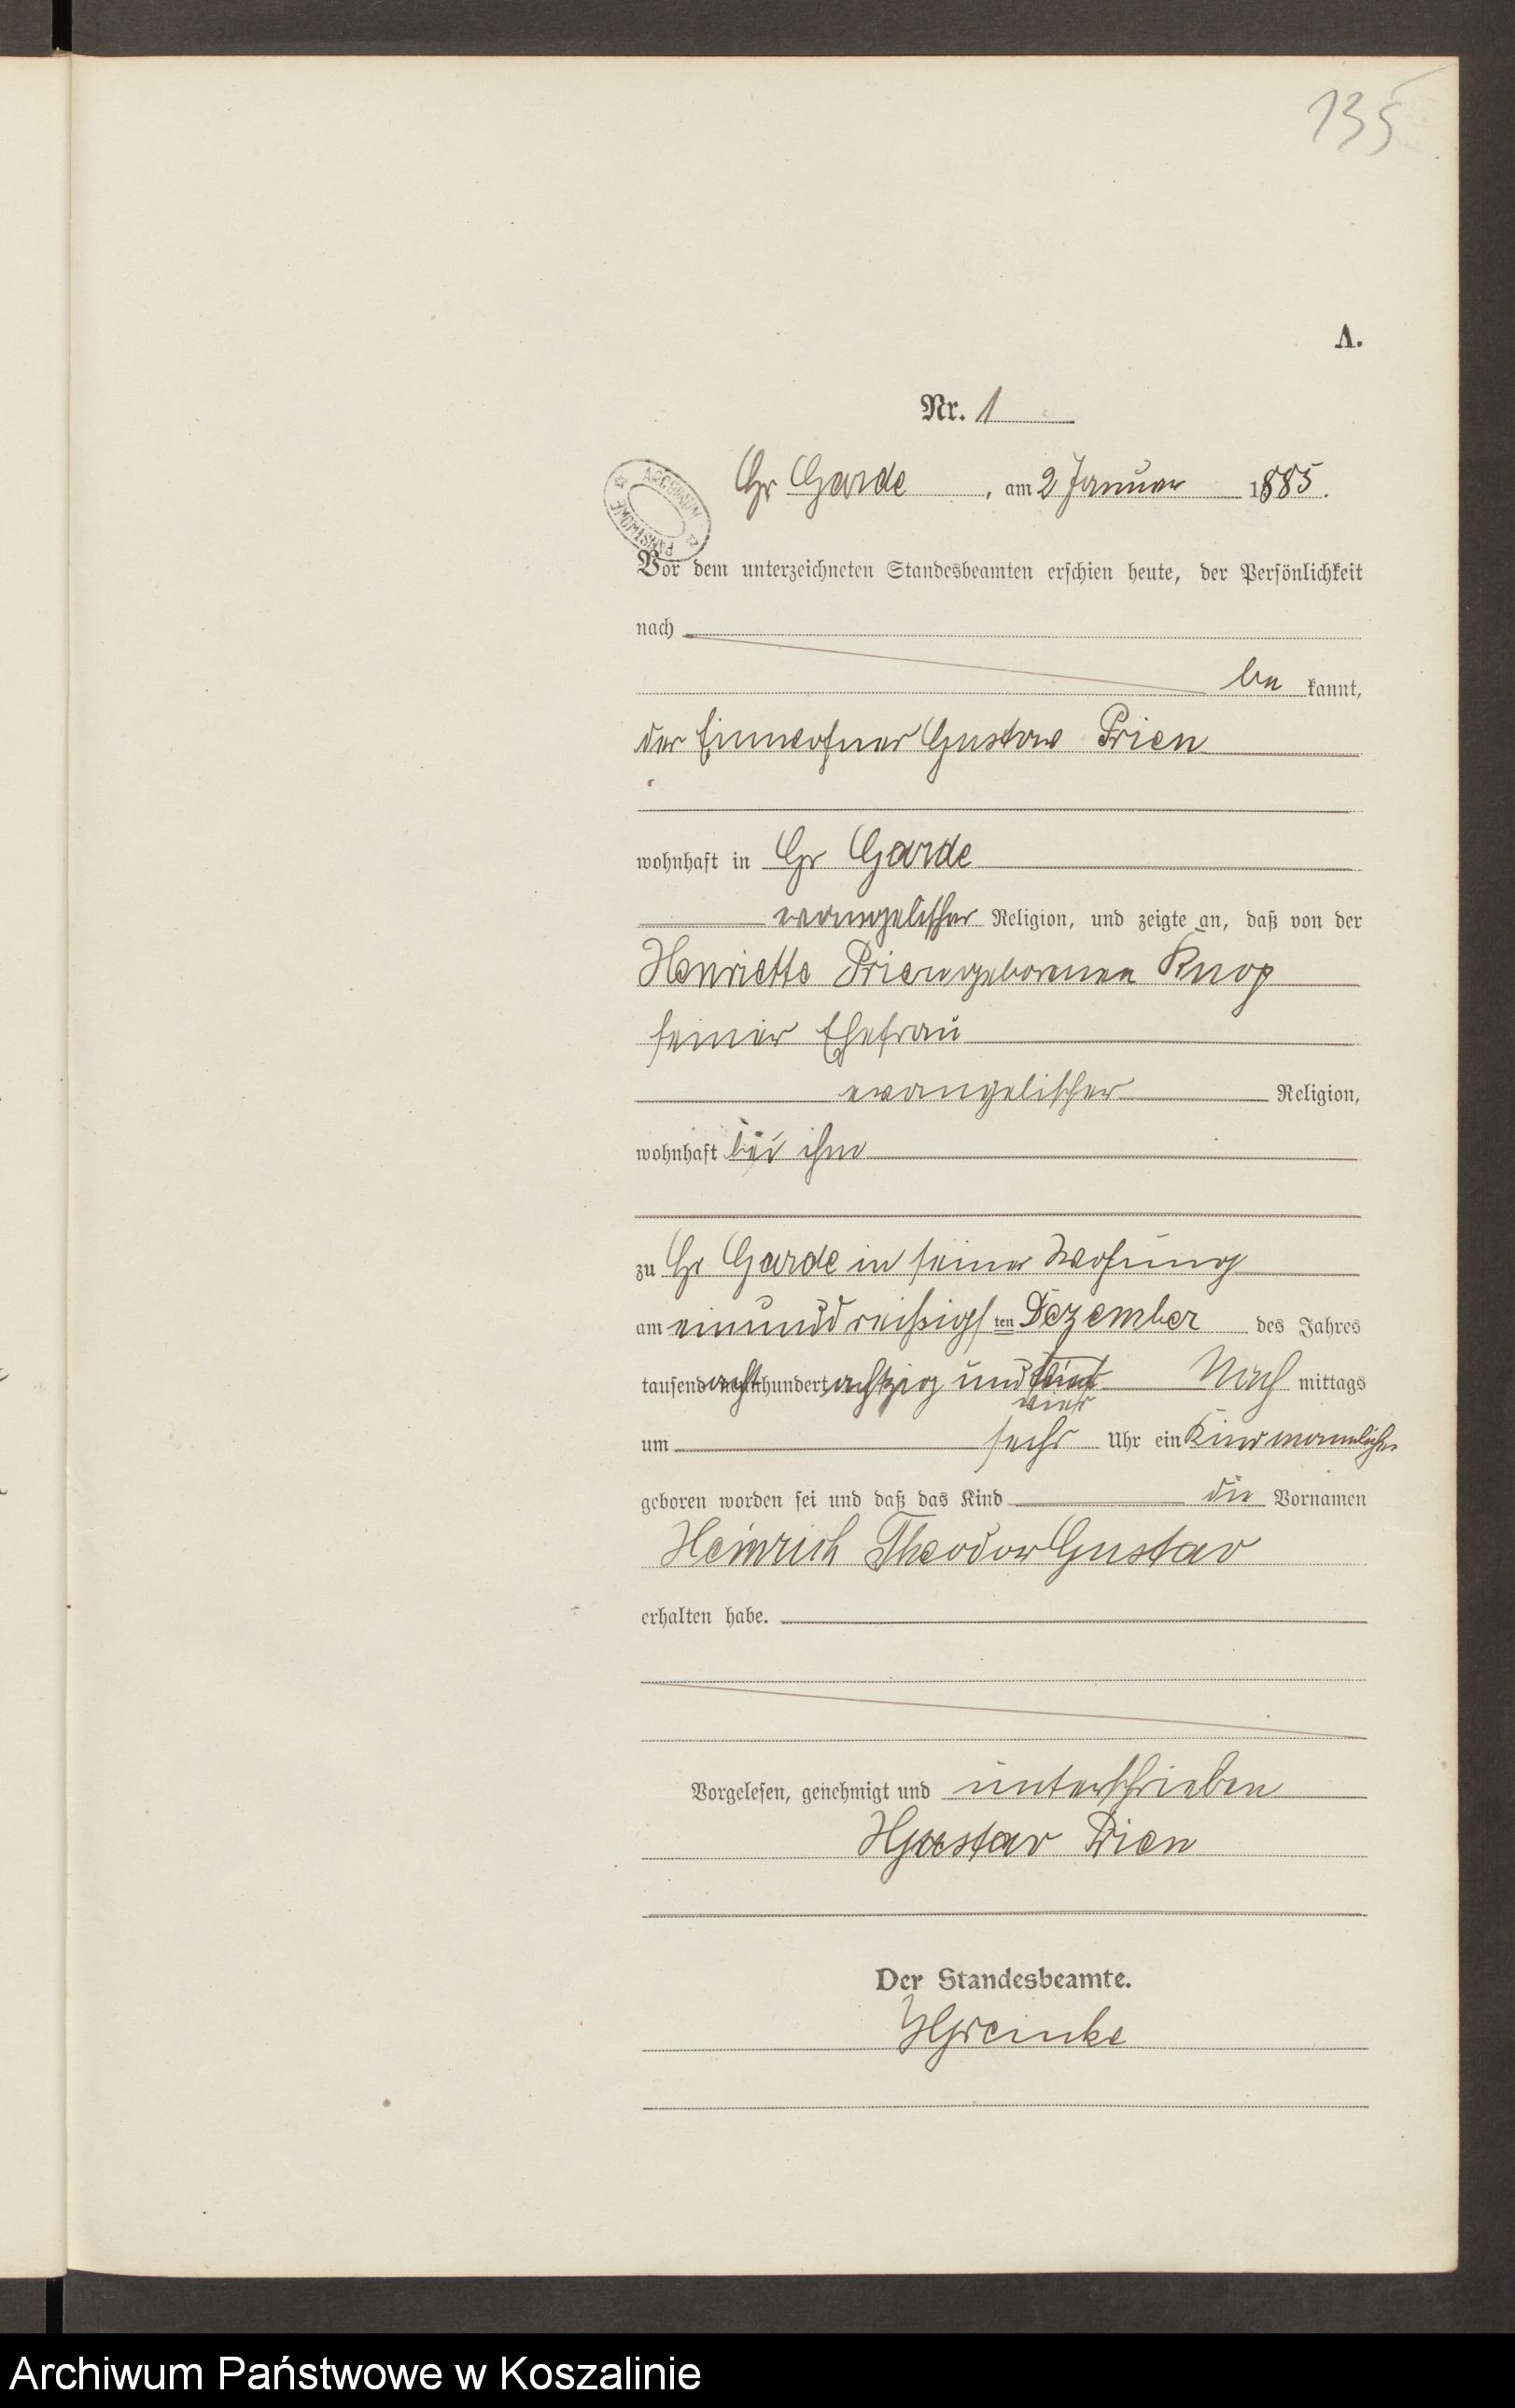 135
A.
Nr. 1
Gr Garde, am 2 Januar 1885.
ARCHIWUM PAŃSTWOWE
Vor dem unterzeichneten Standesbeamten erschien heute, der Persönlichkeit
nach
be kannt,
der Einwohner Gustav Prien
wohnhaft in Gr Garde
evangelischer Religion, und zeigte an, daß von der
Henriette Prien geborenen Knop
seiner Ehefrau
evangelischer Religion,
wohnhaft bei ihm
zu Gr Garde in seiner Wohung
am einunddreißigsten Dezember des Jahres
tausend acht hundert achtzig und Nach mittags
vier
um sechs Uhr ein Kind mannliches
geboren worden sei und daß das Kind die Vornamen
Heinrich Theodor Gustav
erhalten habe.
Vorgelesen, genehmigt und unterschrieben
Gustav Prien
Der Standesbeamte.
Archiwum Państwowe w Koszalinie